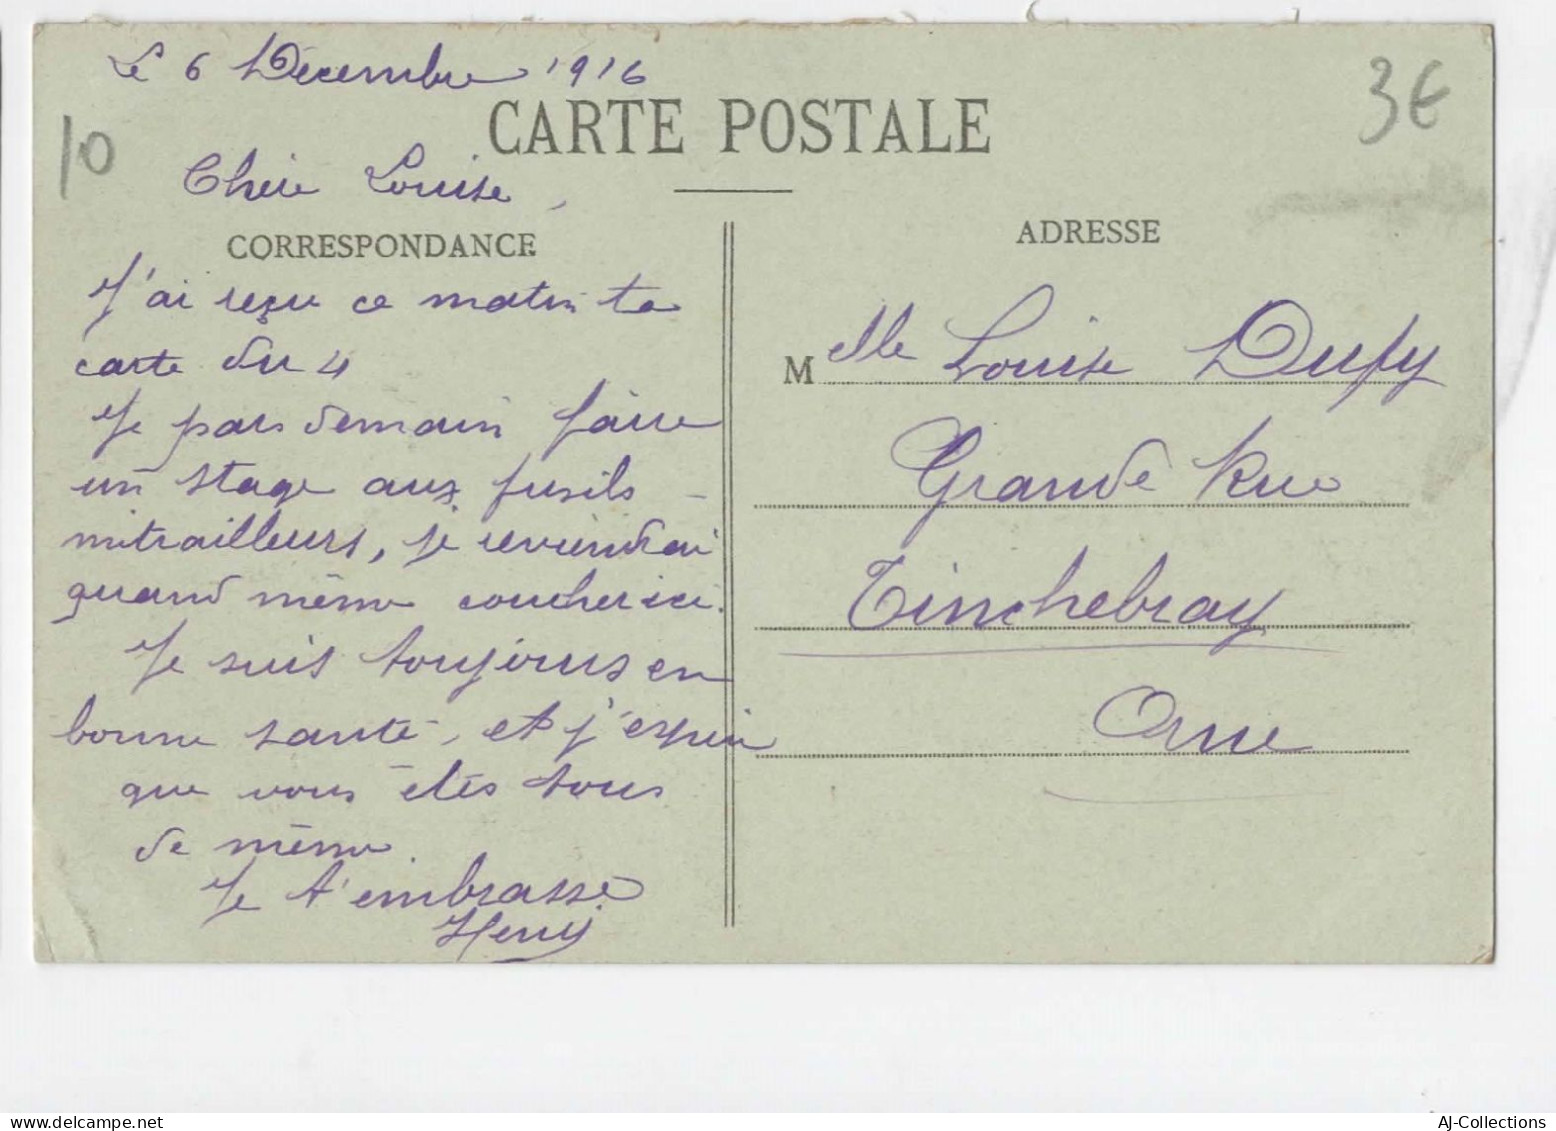 Le 6 Décembre 1916
3€
10
CARTE POSTALE
Chère Louise,
CORRESPONDANCE
J'ai reçu ce matin ta
carte du 4
Je pars demain faire
un stage aux fusils-
mitrailleurs, je reviendrai
quand même coucher ici.
Je suis toujours en
bonne santé, et j'espère
que vous êtes tous
de même.
Je t'embrasse
Henry
ADRESSE
Melle Louise Dufy
Grande Rue
Tinchebray
Orne
AJ-Collections